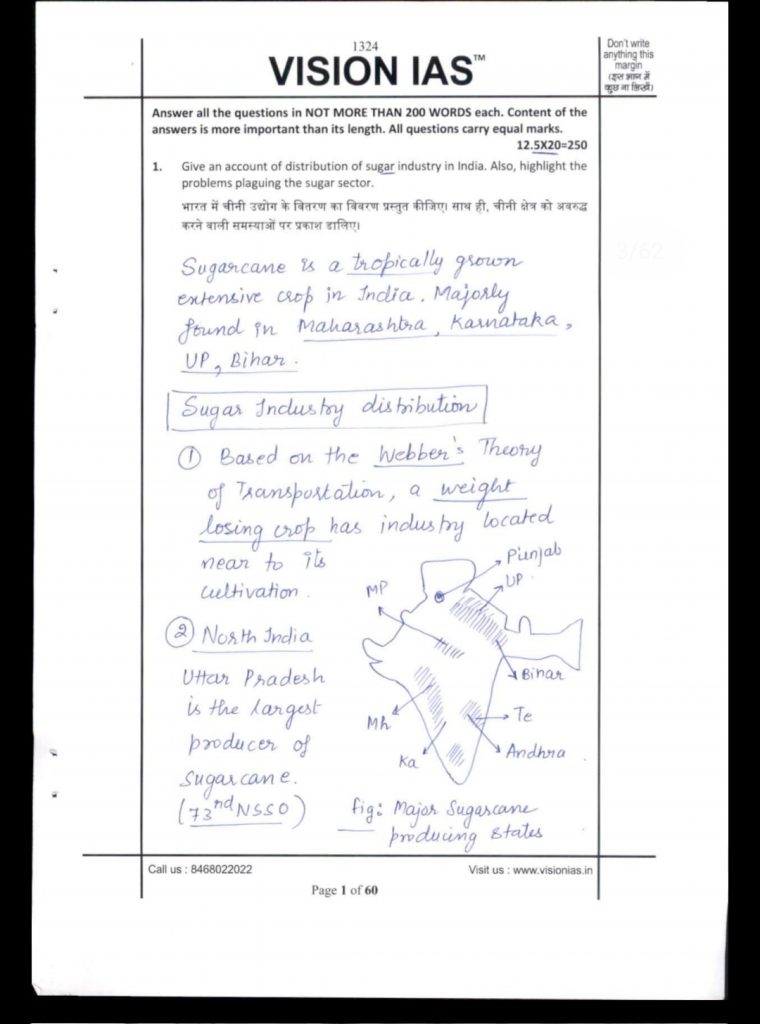 1324
VISION IAS™
Don't write
anything this
margin
(इस भाग में
कुछ ना लिखें)
Answer all the questions in NOT MORE THAN 200 WORDS each. Content of the
answers is more important than its length. All questions carry equal marks.
12.5X20=250
1. Give an account of distribution of sugar industry in India. Also, highlight the
problems plaguing the sugar sector.
भारत में चीनी उद्योग के वितरण का विवरण प्रस्तुत कीजिए। साथ ही, चीनी क्षेत्र को अवरुद्ध
करने वाली समस्याओं पर प्रकाश डालिए।
3/62
Sugarcane is a tropically grown
extensive crop in India. Majorly
found in Maharashtra, Karnataka,
UP, Bihar.
Sugar Industry distribution
① Based on the Webber's Theory
of Transportation, a weight
losing crop has industry located
near to its
cultivation.
Punjab
UP.
MP
Bihar
Te
Andhra
Mh
Ka
② North India
Uttar Pradesh
is the largest
producer of
Sugarcane.
(73nd NSSO)
fig: Major Sugarcane
producing states
Call us : 8468022022
Visit us : www.visionias.in
Page 1 of 60